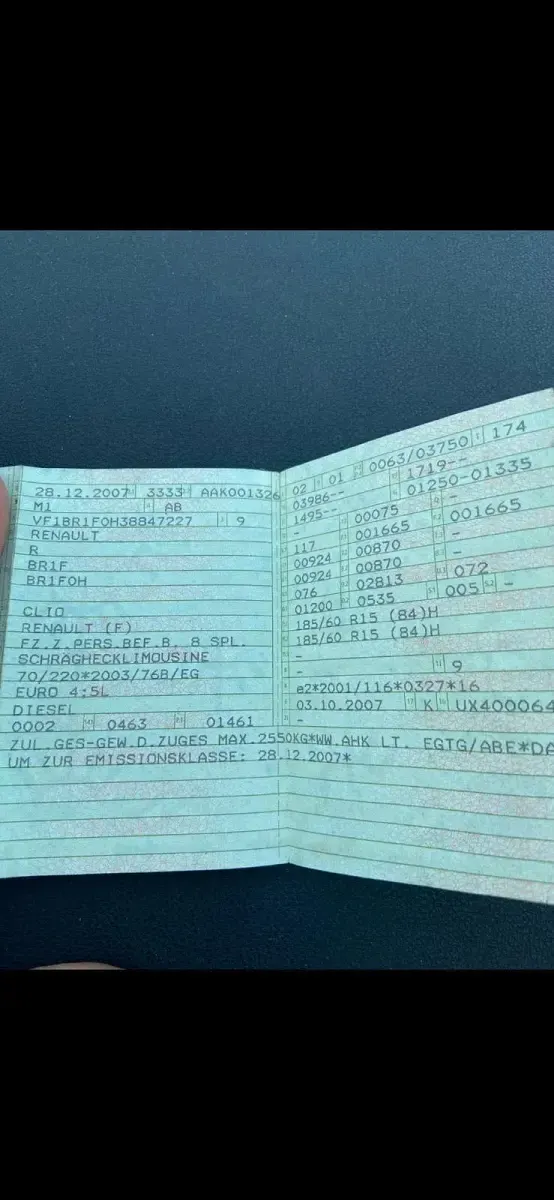 28.12.2007 3333 AAK001326
M1 AB
VF1BR1F0H38847227 9
RENAULT
R
BR1F
BR1F0H
CLIO
RENAULT (F)
FZ.Z.PERS.BEF.B. 8 SPL.
SCHRÄGHECKLIMOUSINE
70/220*2003/76B/EG
EURO 4;5L
DIESEL
0002 0463 01461
02 01 0063/03750 174
03986-- 1719--
1495-- 01250-01335
- 00075 -
117 001665 001665
00924 00870 -
00924 00870 -
076 02813 072
01200 0535 005 -
185/60 R15 (84)H
185/60 R15 (84)H
-
- 9
e2*2001/116*0327*16
03.10.2007 K UX400064
-
ZUL.GES-GEW.D.ZUGES MAX.2550KG*WW.AHK LT. EGTG/ABE*DA
UM ZUR EMISSIONSKLASSE: 28.12.2007*